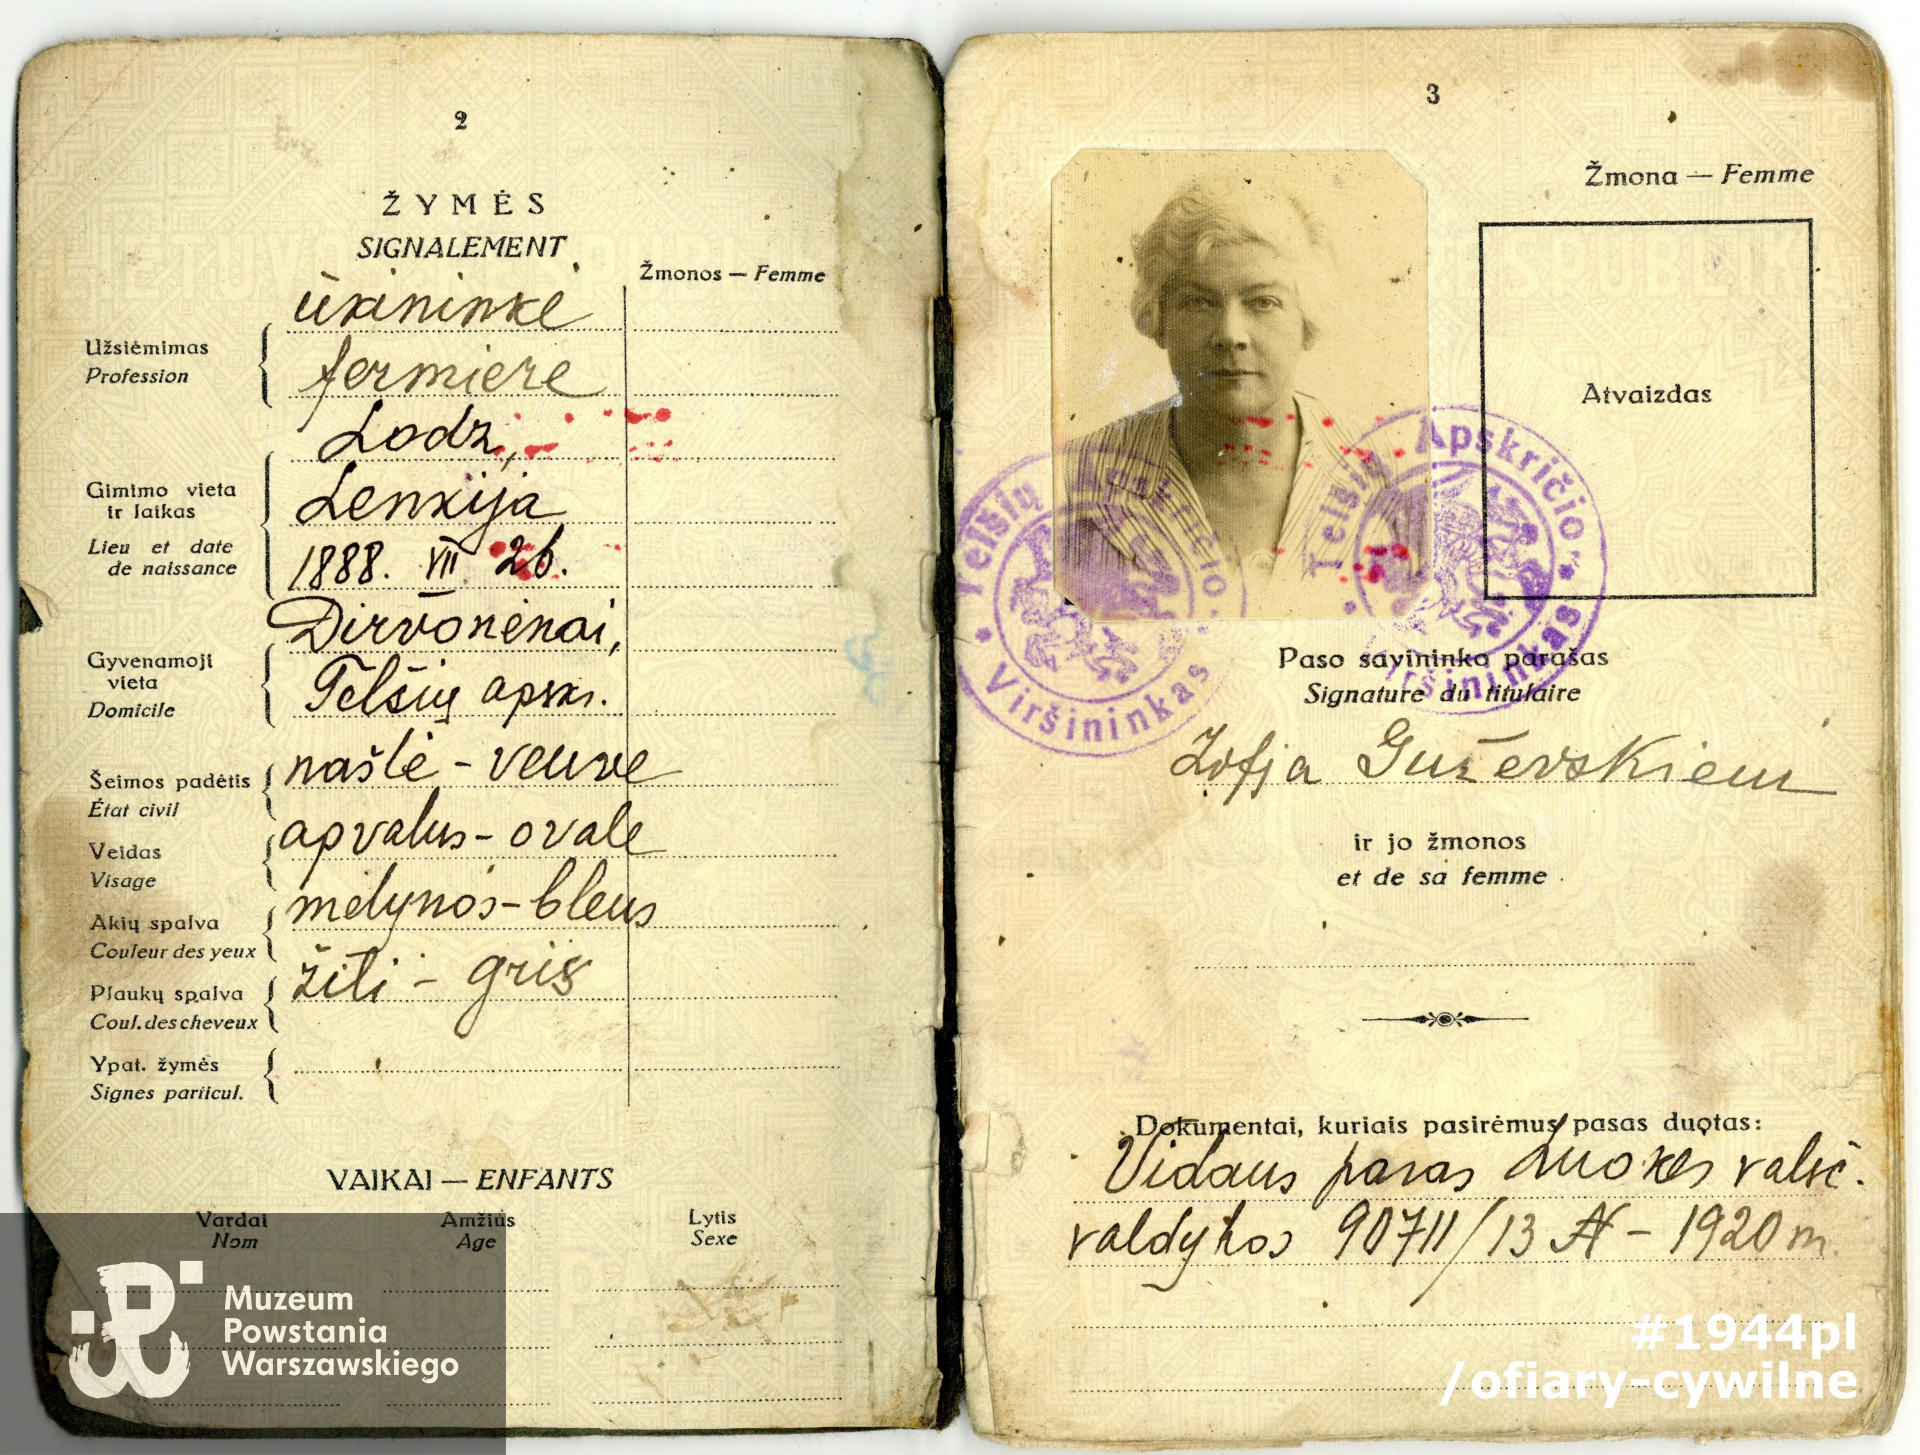 2
ŽYMĖS
SIGNALEMENT
Žmonos — Femme
Užsiėmimas
Profession
ūkininkė
fermiere
Gimimo vieta
ir laikas
Lieu et date
de naissance
Lodz,
Lenkija
1888. VII 26.
Gyvenamoji
vieta
Domicile
Dirvonėnai,
Telšių apskr.
Šeimos padėtis
État civil
našlė - veuve
Veidas
Visage
apvalus - ovale
Akių spalva
Couleur des yeux
mėlynos - bleus
Plaukų spalva
Coul. des cheveux
žili - gris
Ypat. žymės
Signes particul.
VAIKAI — ENFANTS
Vardai
Nom
Amžius
Age
Lytis
Sexe
Muzeum
Powstania
Warszawskiego
3
Žmona — Femme
Atvaizdas
Telšių Apskričio
Viršininkas
Telšių Apskričio
Viršininkas
Paso savininko parašas
Signature du titulaire
Zofja Gużewskien
ir jo žmonos
et de sa femme
Dokumentai, kuriais pasirėmus pasas duotas:
Vidaus pasas Luokės valsč.
valdybos 90711/13 № - 1920 m.
#1944pl
/ofiary-cywilne